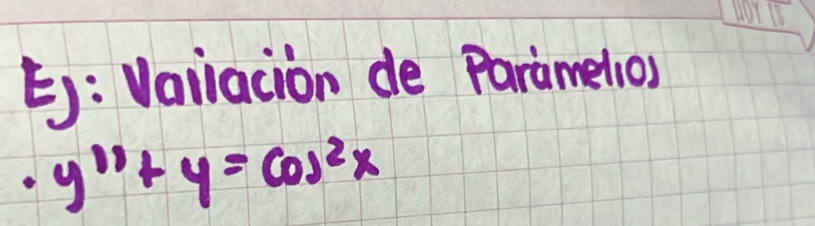 HOY IS
Ej: Variación de Parámetros
· y'' + y = cos²x